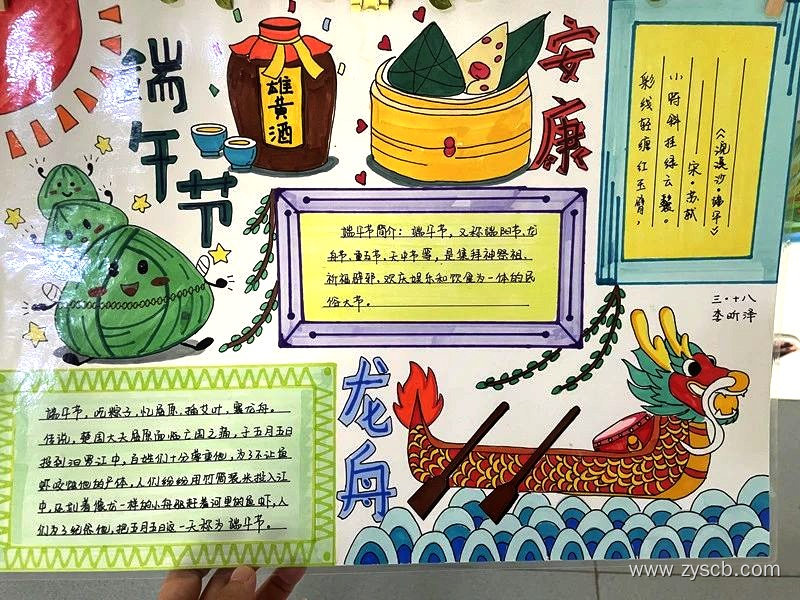 端午节
雄黄酒
安康
《浣溪沙·端午》
宋·苏轼
小符斜挂绿云鬟。
彩线轻缠红玉臂，
端午节简介：端午节，又称端阳节、龙
舟节、重五节、天中节等，是集拜神祭祖、
祈福辟邪、欢庆娱乐和饮食为一体的民
俗大节。
三·十八
李昕泽
龙舟
端午节，吃粽子，忆屈原，插艾叶，赛龙舟。
传说，楚国大夫屈原面临亡国之痛，于五月五日
投到汨罗江中，百姓们十分爱重他，为了不让鱼
虾咬蚀他的尸体，人们纷纷用竹筒装米投入江
中，还划着像龙一样的小舟驱赶着河里的鱼虾，人
们为了纪念他，把五月五日这一天称为端午节。
www.zyscb.com